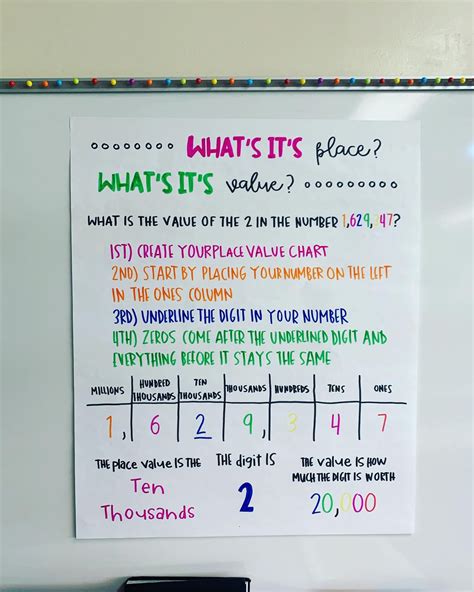 WHAT'S IT'S place?
WHAT'S IT'S value?
WHAT IS THE VALUE OF THE 2 IN THE NUMBER 1,629,347?
1ST) CREATE YOUR PLACE VALUE CHART
2ND) START BY PLACING YOUR NUMBER ON THE LEFT
IN THE ONES COLUMN
3RD) UNDERLINE THE DIGIT IN YOUR NUMBER
4TH) ZEROS COME AFTER THE UNDERLINED DIGIT AND
EVERYTHING BEFORE IT STAYS THE SAME
MILLIONS HUNDRED THOUSANDS TEN THOUSANDS THOUSANDS HUNDREDS TENS ONES
1, 6 2 9, 3 4 7
THE PLACE VALUE IS THE
Ten
Thousands
THE DIGIT IS
2
THE VALUE IS HOW
MUCH THE DIGIT IS WORTH
20,000